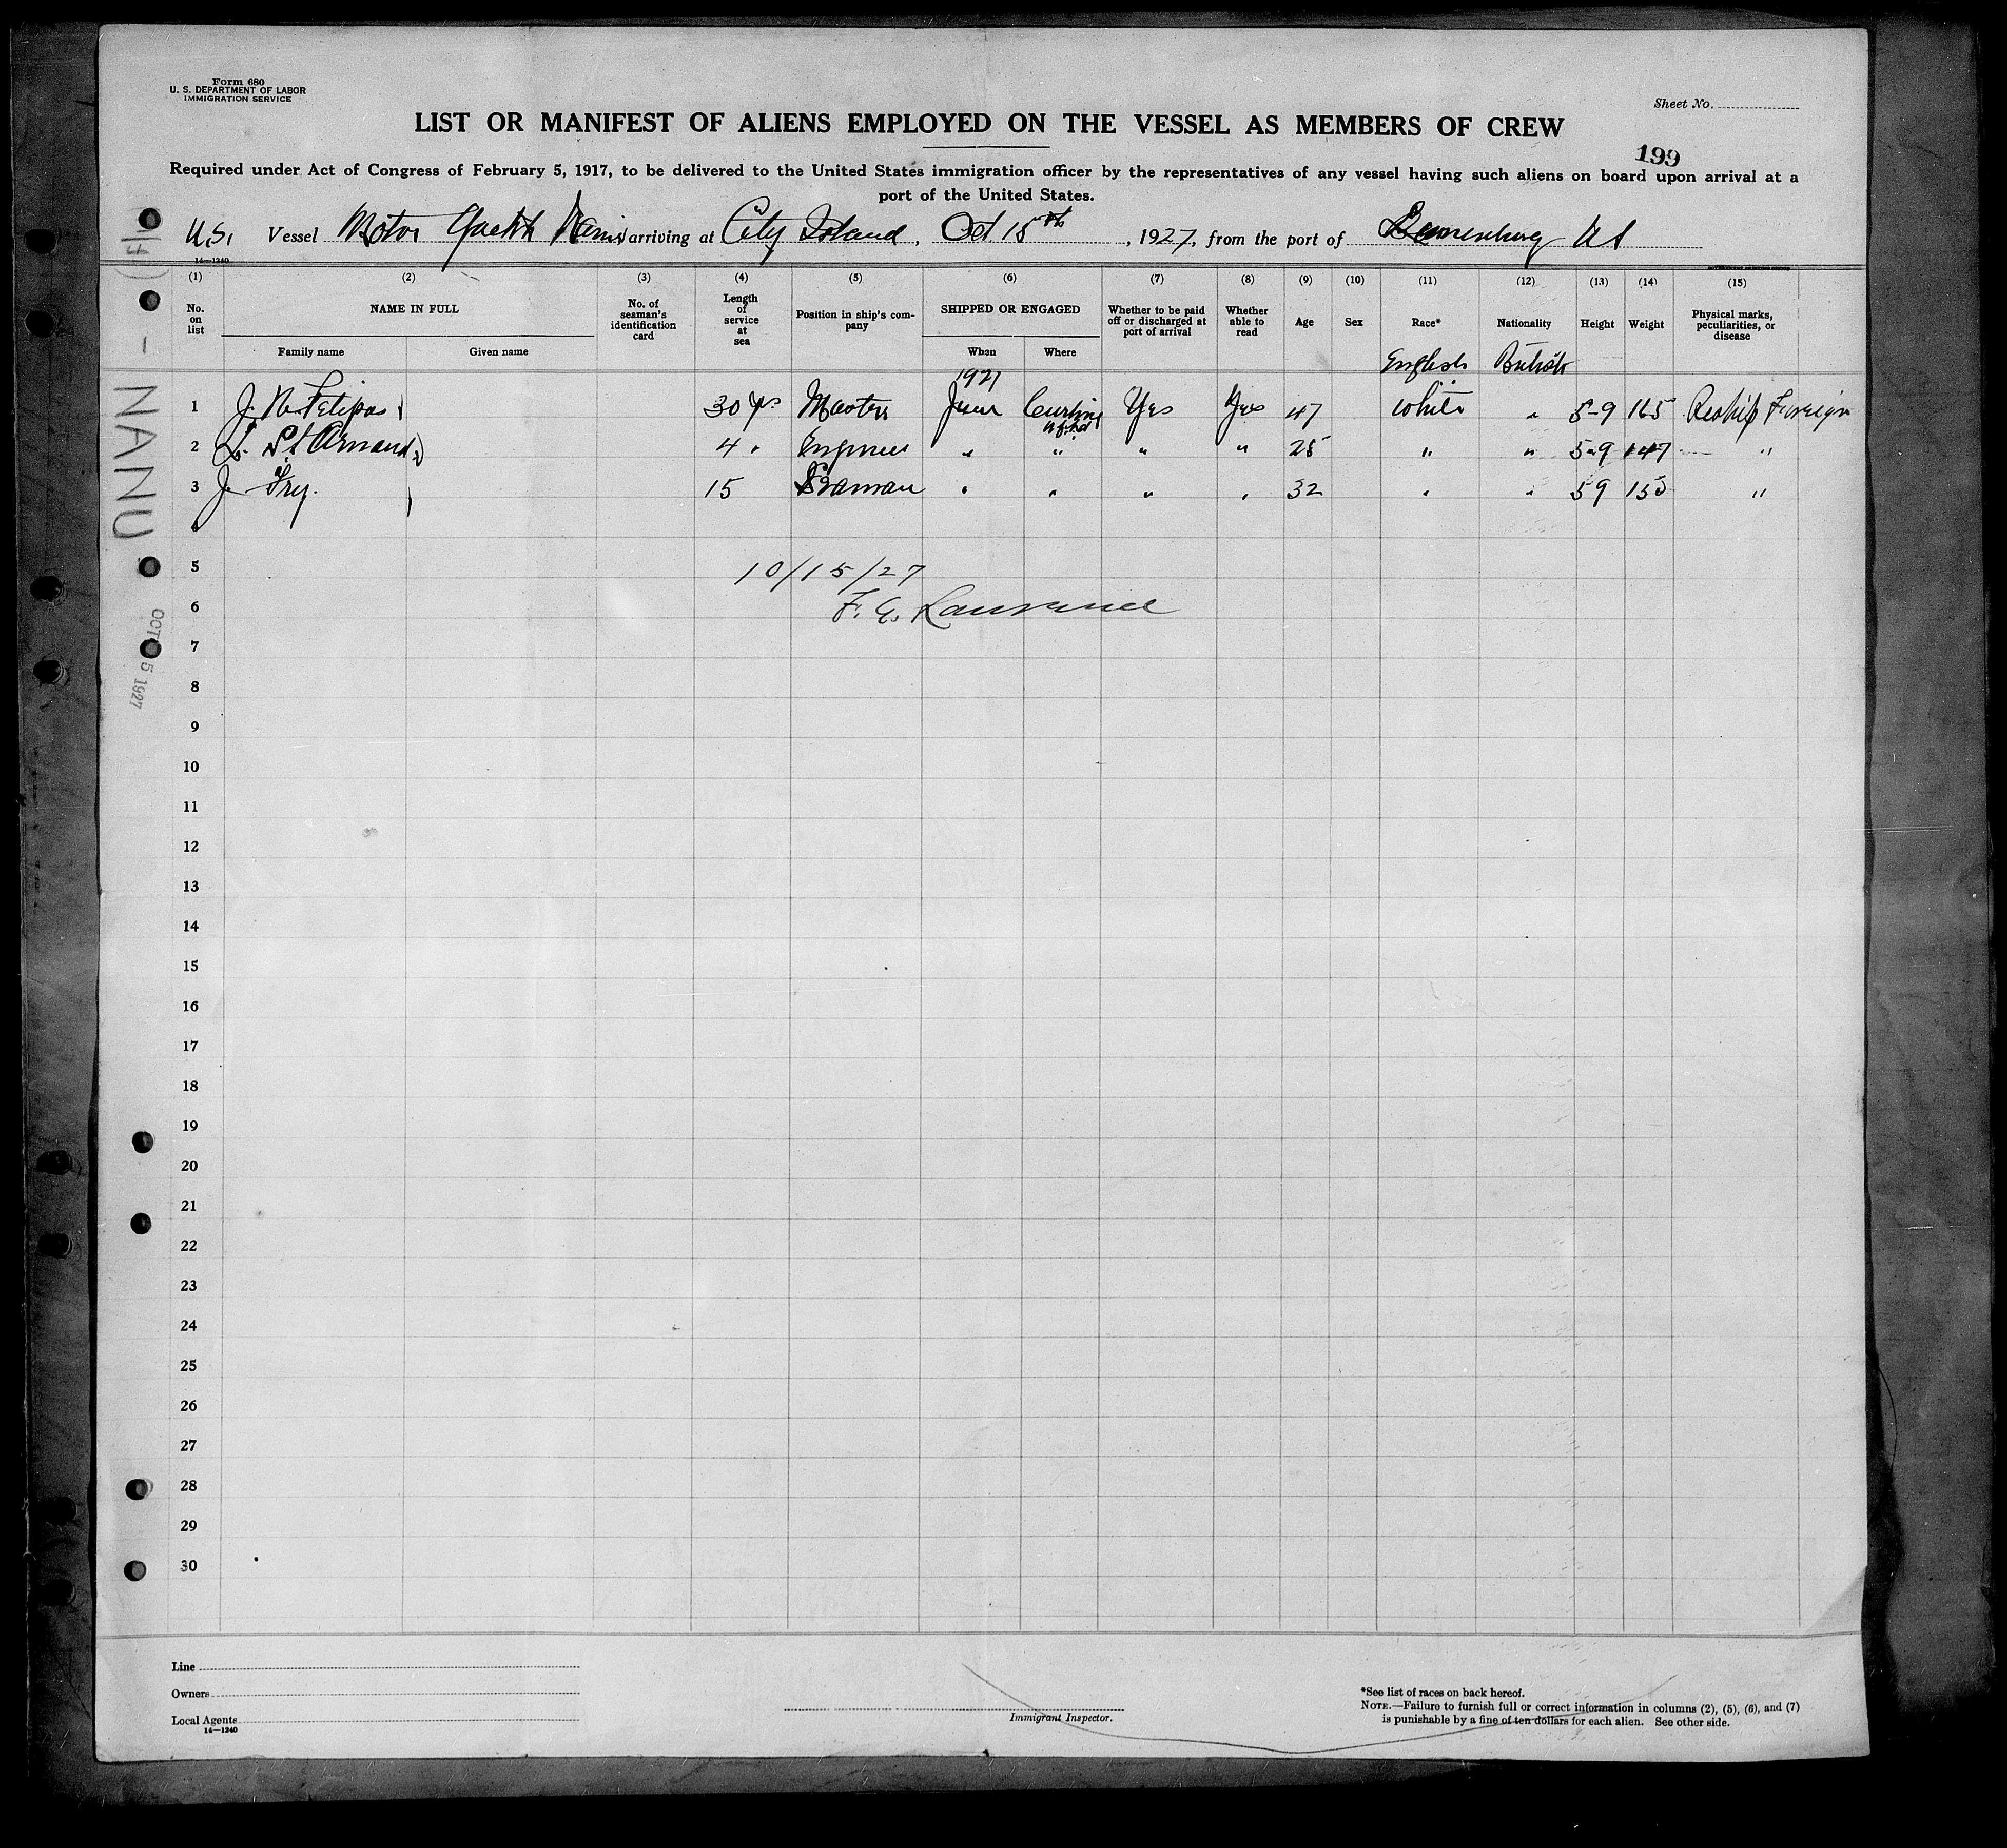 Form 680
U. S. DEPARTMENT OF LABOR
IMMIGRATION SERVICE
Sheet No.
LIST OR MANIFEST OF ALIENS EMPLOYED ON THE VESSEL AS MEMBERS OF CREW
199
Required under Act of Congress of February 5, 1917, to be delivered to the United States immigration officer by the representatives of any vessel having such aliens on board upon arrival at a
port of the United States.
U.S. Vessel Motor Yacht arriving at City Island, Oct 15th, 1927, from the port of
14—1240
(1) (2) (3) (4) (5) (6) (7) (8) (9) (10) (11) (12) (13) (14) (15)
No. on list
NAME IN FULL
Family name
Given name
No. of seaman's identification card
Length of service at sea
Position in ship's company
SHIPPED OR ENGAGED
When
Where
Whether to be paid off or discharged at port of arrival
Whether able to read
Age
Sex
Race*
Nationality
Height
Weight
Physical marks, peculiarities, or disease
1927 English British
1 J. 30 yrs Master June Curling Yes Yes 47 White " 5-9 165 Reship Foreign
2 L. St Arnaud 4 " Engineer " " " " 28 " " 5-9 147 "
3 J. Fry. 15 Seaman " " " " 32 " " 59 150 "
4
5
10/15/27
6
F. G. Lawrence
7
8
9
10
11
12
13
14
15
16
17
18
19
20
21
22
23
24
25
26
27
28
29
30
NANU
OCT 15 1927
Line
Owners
Local Agents
14—1240
Immigrant Inspector.
*See list of races on back hereof.
NOTE.—Failure to furnish full or correct information in columns (2), (5), (6), and (7)
is punishable by a fine of ten dollars for each alien. See other side.